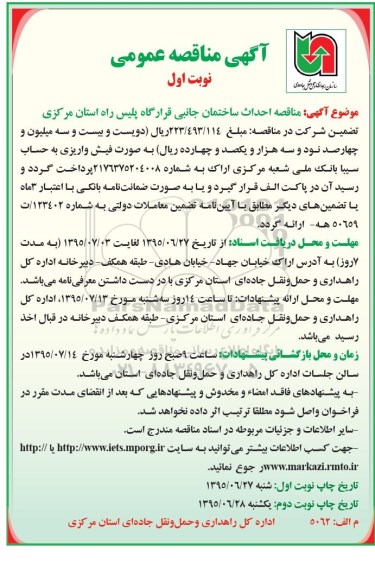 آگهی مناقصه عمومی
نوبت اول
سازمان راهداری و حمل و نقل جاده‌ای
موضوع آگهی: مناقصه احداث ساختمان جانبی قرارگاه پلیس راه استان مرکزی
تضمین شرکت در مناقصه: مبلغ ۲۲۳/۴۹۳/۱۱۴ریال (دویست و بیست و سه میلیون و
چهارصد نود و سه هزار و یکصد و چهارده ریال) به صورت فیش واریزی به حساب
سیبا بانک ملی شعبه مرکزی اراک به شماره ۲۱۷۶۳۷۵۲۰۴۰۰۸پرداخت گردد و
رسید آن در پاکت الف قرار گیرد و یا به صورت ضمانت‌نامه بانکی با اعتبار ۳ماه
یا تضمین‌های دیگر مطابق با آیین‌نامه تضمین معاملات دولتی به شماره ۱۲۳۴۰۲/ت
۵۰۶۵۹ هـ- ارائه گردد.
مهلت و محل دریافت اسناد: از تاریخ ۱۳۹۵/۰۶/۲۷ لغایت ۱۳۹۵/۰۷/۰۳ (به مدت
۷روز) به آدرس اراک خیابان جهاد- خیابان هادی- طبقه همکف- دبیرخانه اداره کل
راهداری و حمل‌ونقل جاده‌ای استان مرکزی با در دست داشتن معرفی‌نامه می‌باشد.
مهلت و محل ارائه پیشنهادات: تا ساعت ۱۴روز سه‌شنبه مورخ ۱۳۹۵/۰۷/۱۳، اداره کل
راهداری و حمل‌ونقل جاده‌ای استان مرکزی- طبقه همکف دبیرخانه در قبال اخذ
رسید می‌باشد.
زمان و محل بازگشائی پیشنهادات: ساعت ۹صبح روز چهارشنبه مورخ ۱۳۹۵/۰۷/۱۴در
سالن جلسات اداره کل راهداری و حمل‌ونقل جاده‌ای استان می‌باشد.
-به پیشنهادهای فاقد امضاء و مخدوش و پیشنهادهایی که بعد از انقضای مدت مقرر در
فراخوان واصل شود مطلقا ترتیب اثر داده نخواهد شد.
-سایر اطلاعات و جزئیات مربوطه در اسناد مناقصه مندرج است.
-جهت کسب اطلاعات بیشتر می‌توانید به سایت http://www.iets.mporg.ir یا http://
www.markazi.rmto.ir رجوع نمائید.
تاریخ چاپ نوبت اول: شنبه ۱۳۹۵/۰۶/۲۷
تاریخ چاپ نوبت دوم: یکشنبه ۱۳۹۵/۰۶/۲۸
م الف: ۵۰۶۲ اداره کل راهداری وحمل‌ونقل جاده‌ای استان مرکزی